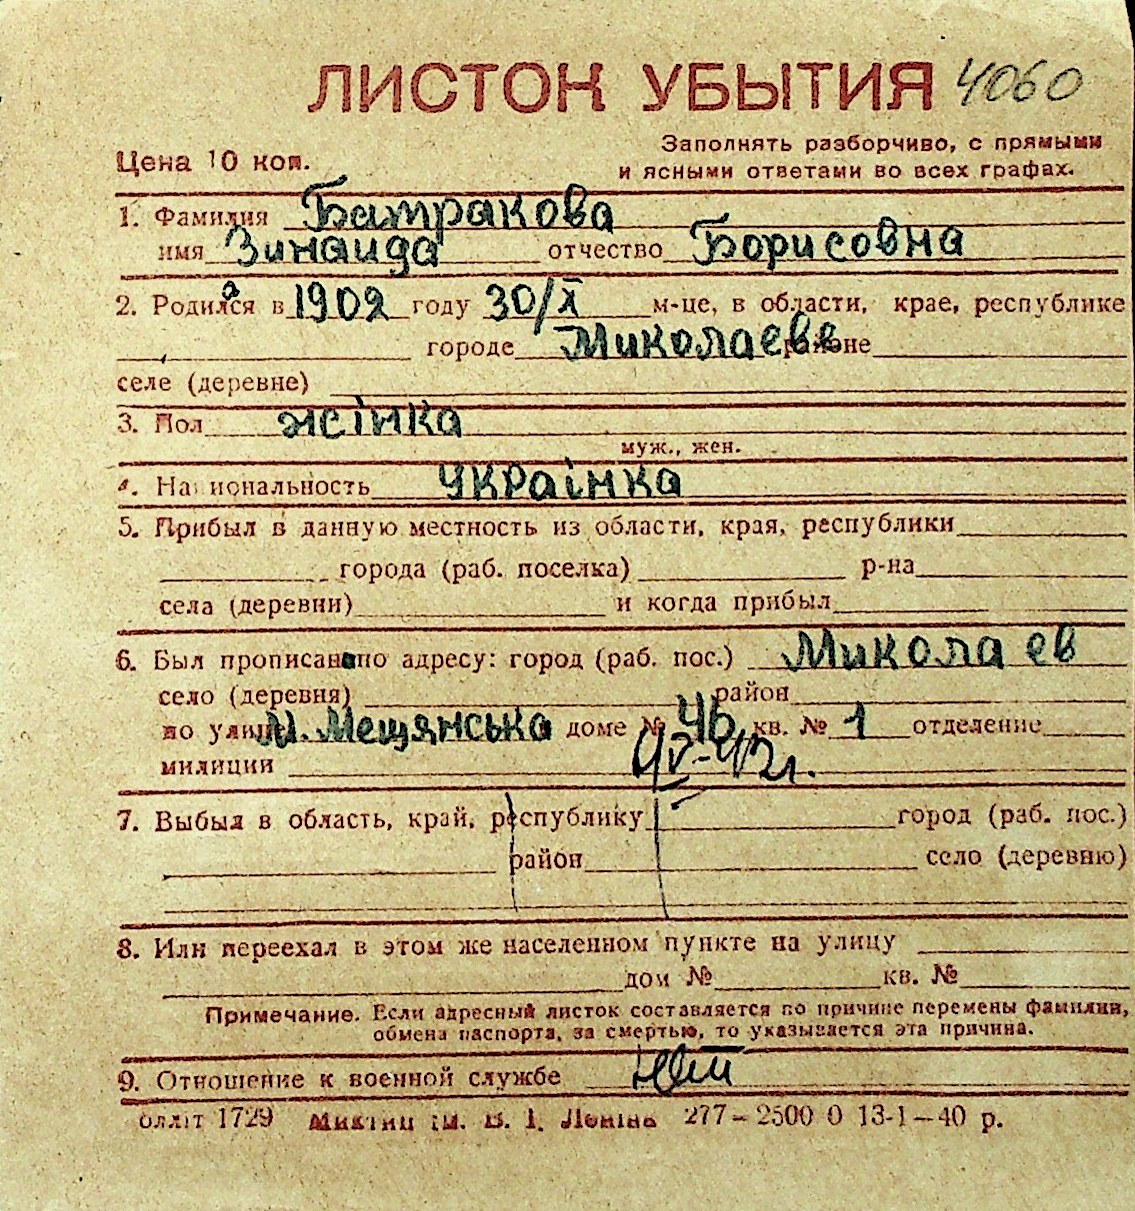 ЛИСТОК УБЫТИЯ 4060
Цена 10 коп.
Заполнять разборчиво, с прямыми
и ясными ответами во всех графах.
1. Фамилия Батракова
имя Зинаида отчество Борисовна
2. Родилася в 1902 году 30/X м-це, в области, крае, республике
городе Миколаеве районе
селе (деревне)
3. Пол жінка
муж., жен.
4. Национальность українка
5. Прибыл в данную местность из области, края, республики
города (раб. поселка) р-на
села (деревни) и когда прибыл
6. Был прописано по адресу: город (раб. пос.) Миколаев
село (деревня) район
по улице М. Мещянська доме № 46 кв. № 1 отделение
милиции
7. Выбыл в область, край, республику город (раб. пос.)
район село (деревню)
8. Или переехал в этом же населенном пункте на улицу
дом № кв. №
Примечание. Если адресный листок составляется по причине перемены фамилии,
обмена паспорта, за смертью, то указывается эта причина.
9. Отношение к военной службе нет
1729 ім. В. І. Леніна 277–2500 0 13-1–40 р.